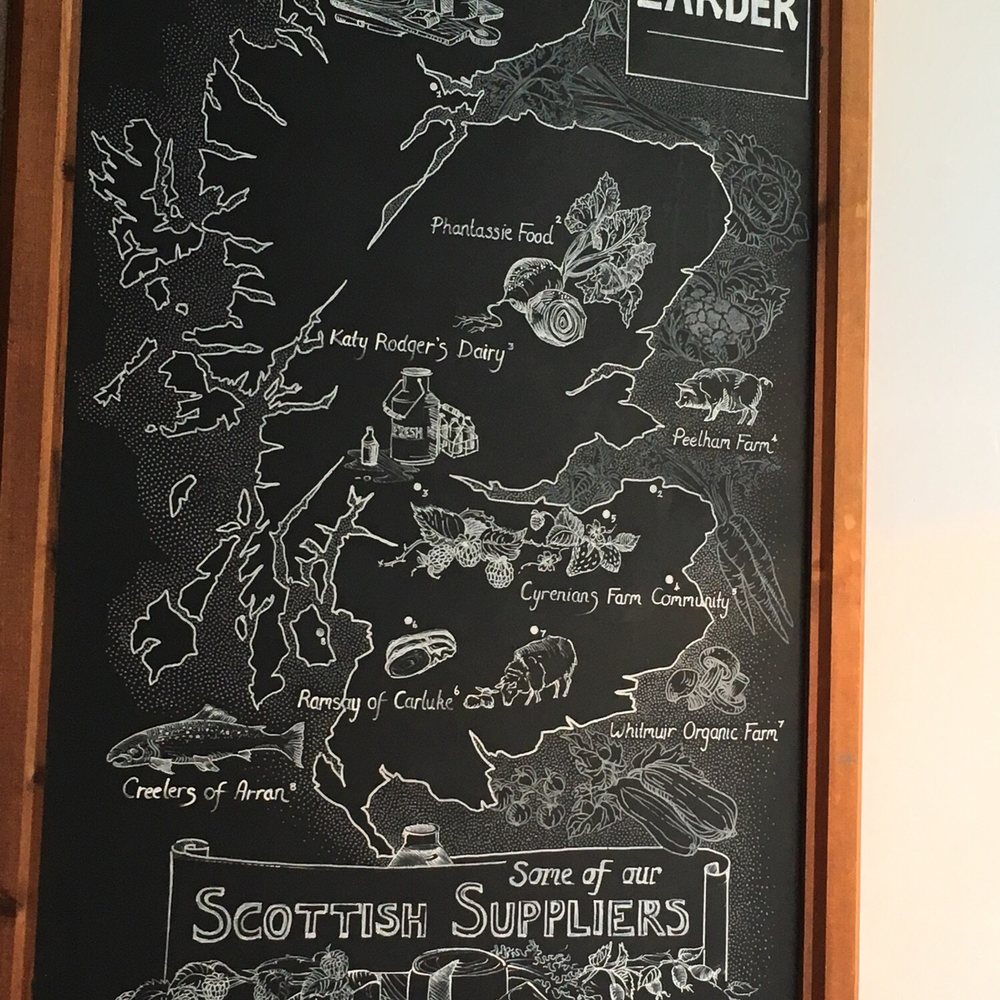 LARDER
1
Phantassie Food 2
Katy Rodger's Dairy 3
FRESH
Peelham Farm 4
3
2
5
4
Cyrenians Farm Community 5
6
7
8
Ramsay of Carluke 6
Whitmuir Organic Farm 7
Creelers of Arran 8
Some of our
SCOTTISH SUPPLIERS